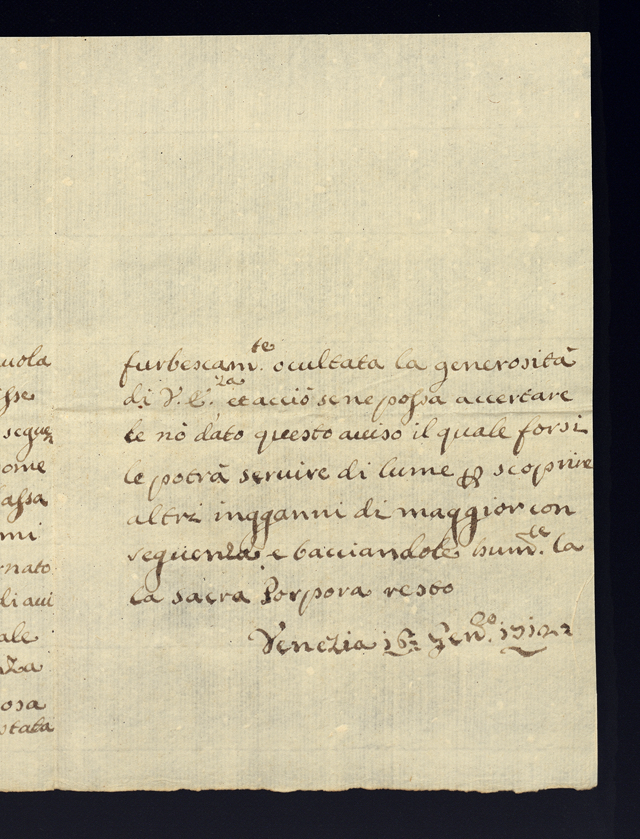 uola
isse
segue
ome
lassa
nni
rnato
di aui
ale
nza
osa
stata
furbescam.te ocultata la generosità
di V. E.za et acciò se ne possa accertare
le nò dato questo auiso il quale forsi
le potrà seruire di lume p scoprire
altri ingganni di maggior con
seguenza, e bacciandole hum.te la
la sacra Porpora resto
Venezia 16: Gen.ro